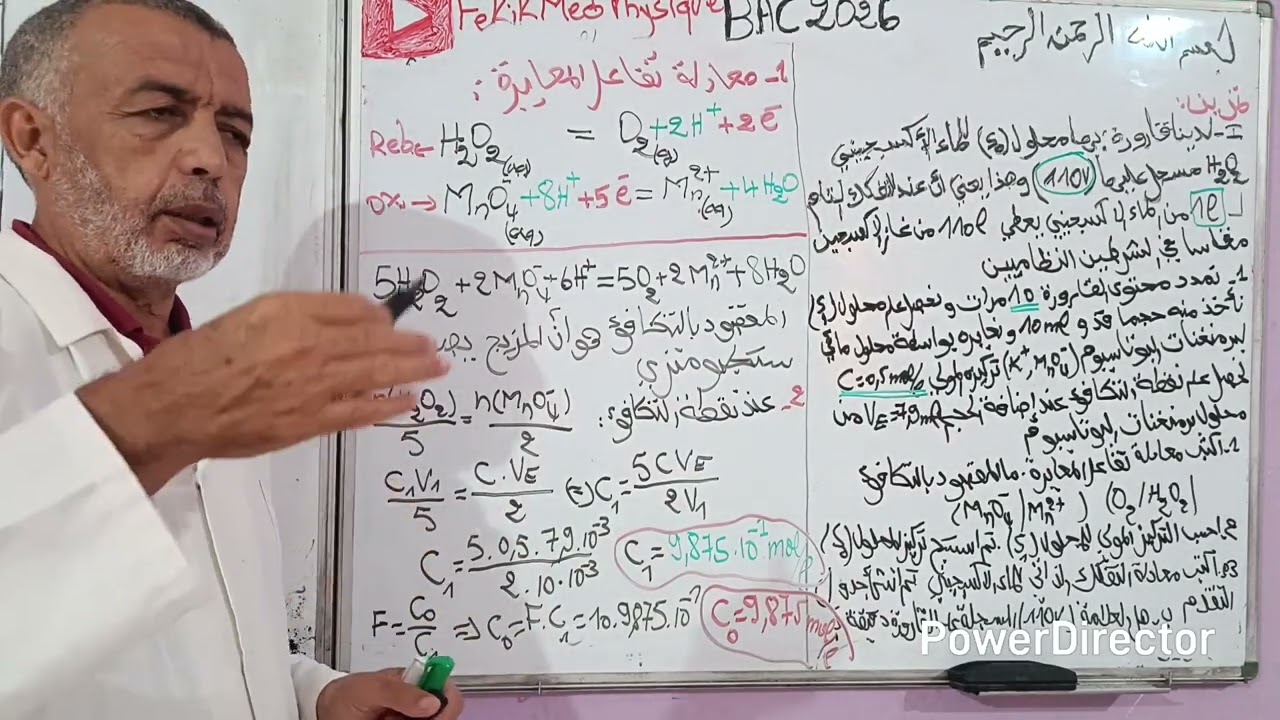 FekiK Med Physique BAC 2026
بسم الله الرحمن الرحيم
1- معادلة تفاعل المعايرة :
Red← H₂O₂(aq) = O₂(g) +2H⁺ +2e⁻
ox→ MnO₄⁻(aq) +8H⁺ +5e⁻ = Mn²⁺(aq) +4H₂O
5H₂O₂ + 2MnO₄⁻ + 6H⁺ = 5O₂ + 2Mn²⁺ + 8H₂O
المقصود بالتكافؤ هو أن المزيج
ستكيومتري
2- عند نقطة التكافؤ :
n(H₂O₂)/5 = n(MnO₄⁻)/2
C₁V₁/5 = C.VE/2 (=) C₁ = 5CVE/2V₁
C₁ = 5.0,5.7,9.10⁻³/2.10.10⁻³
C₁ = 9,875.10⁻¹ mol/l
F = C₀/C₁ => C₀ = F.C₁ = 10.9,875.10⁻¹
C₀ = 9,875 mol/l
تمرين :
I- لدينا قارورة بها محلول (S₀) للماء الأكسجيني
H₂O₂ مسجل عليها (110V) وهذا يعني أن عند التفكك التام
لـ 1l من الماء الأكسجيني يعطي 110l من غاز الأكسجين
مقاسا في الشرطين النظاميين
1- نمدد محتوى القارورة 10 مرات ونحصل على محلول (S₁)
نأخذ منه حجما قدره 10ml ونعايره بواسطة محلول مائي
لبرمنغنات البوتاسيوم (K⁺, MnO₄⁻) تركيزه المولي C=0,5mol/l
نحصل على نقطة التكافؤ عند إضافة حجم VE=7,9ml من
محلول برمنغنات البوتاسيوم
1- اكتب معادلة تفاعل المعايرة. ما المقصود بالتكافؤ
(MnO₄⁻/Mn²⁺) (O₂/H₂O₂)
2- احسب التركيز المولي للمحلول (S₁). ثم استنتج تركيز المحلول (S₀)
3- اكتب معادلة التفكك الذاتي للماء الأكسجيني ثم أنشئ جدول
التقدم ب- هل العلامة (110V) المسجلة في القارورة دقيقة
PowerDirector